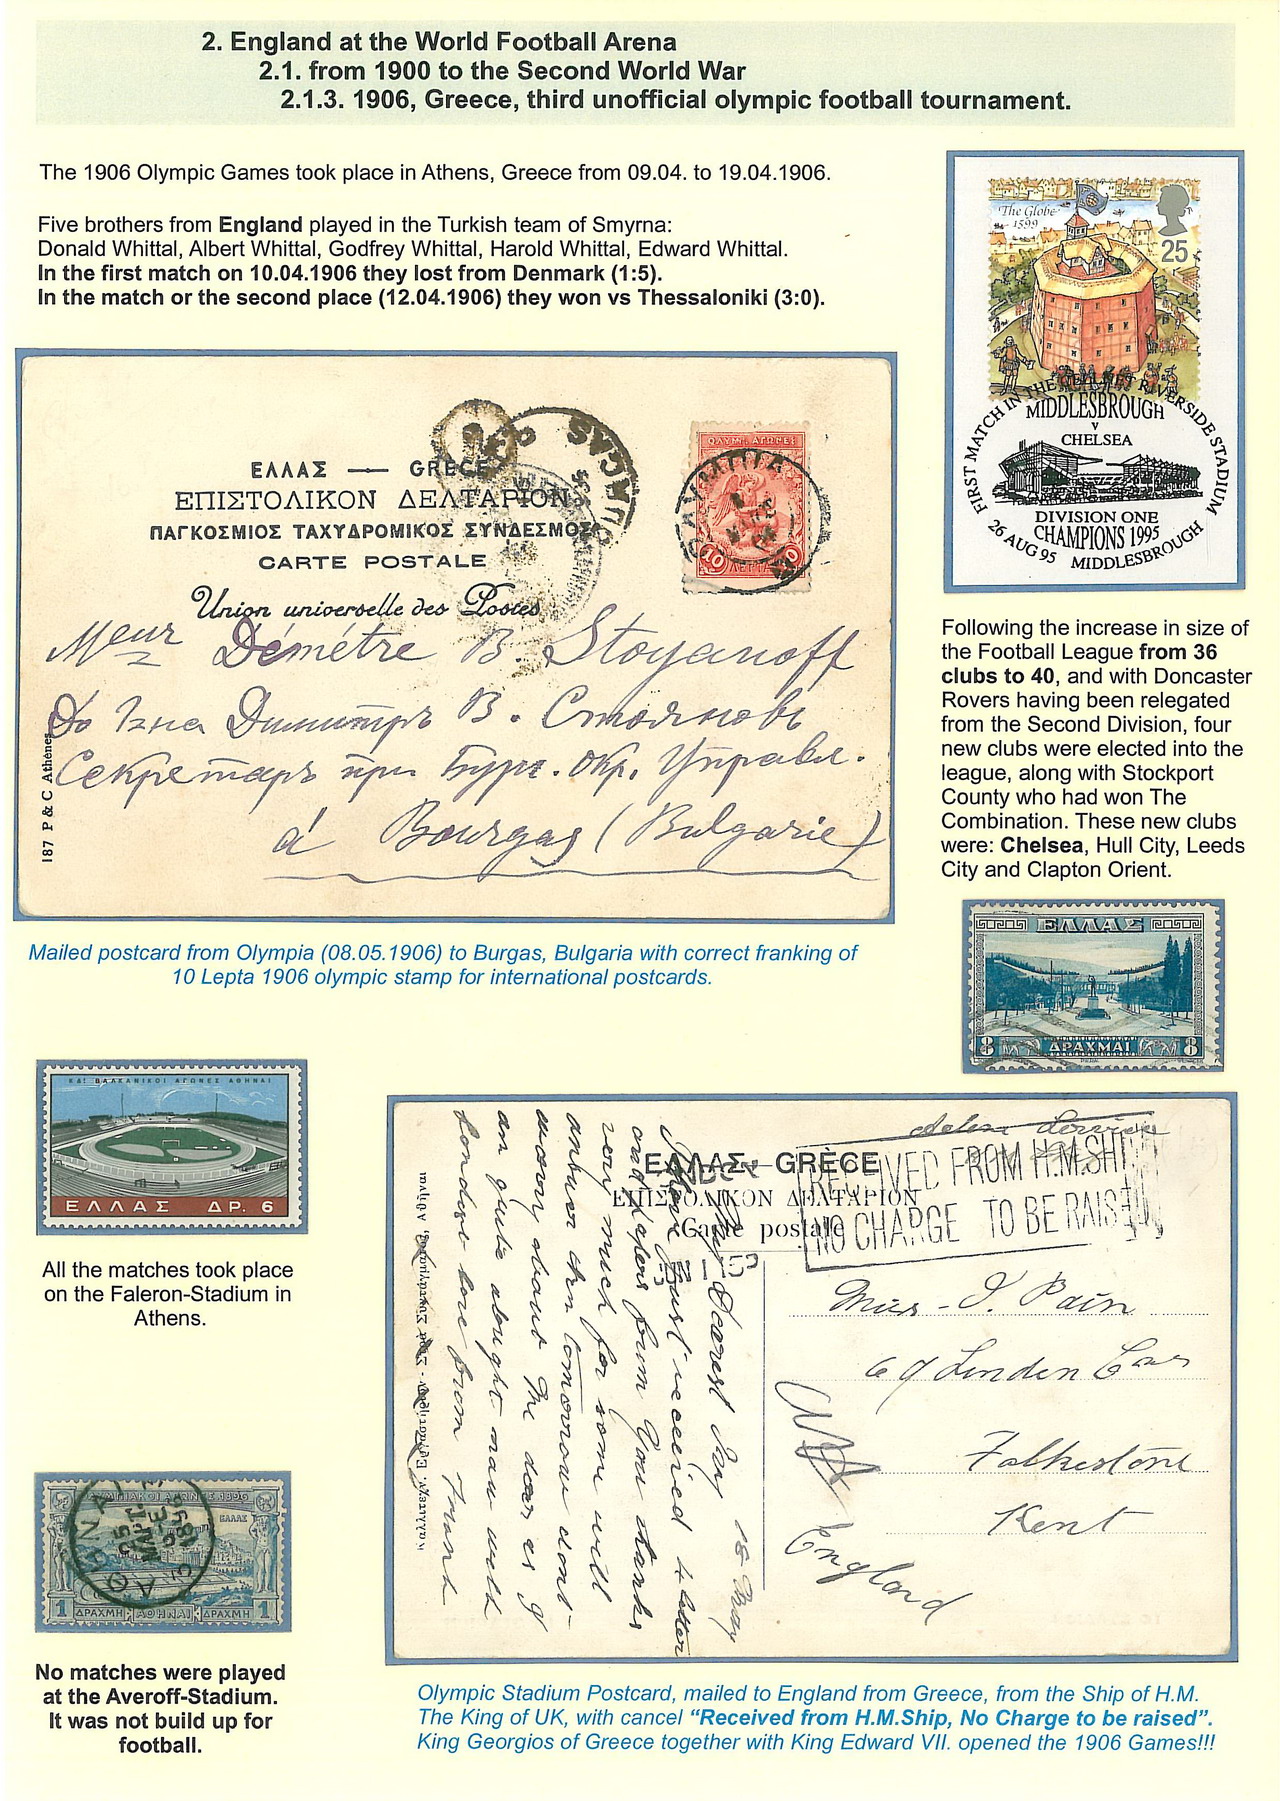 2. England at the World Football Arena
2.1. from 1900 to the Second World War
2.1.3. 1906, Greece, third unofficial olympic football tournament.
The 1906 Olympic Games took place in Athens, Greece from 09.04. to 19.04.1906.
Five brothers from England played in the Turkish team of Smyrna:
Donald Whittal, Albert Whittal, Godfrey Whittal, Harold Whittal, Edward Whittal.
In the first match on 10.04.1906 they lost from Denmark (1:5).
In the match or the second place (12.04.1906) they won vs Thessaloniki (3:0).
The Globe
1599
25
FIRST MATCH IN THE CELLNET RIVERSIDE STADIUM
MIDDLESBROUGH
v
CHELSEA
DIVISION ONE
CHAMPIONS 1995
26 AUG 95 MIDDLESBROUGH
ΕΛΛΑΣ — GRECE
ΕΠΙΣΤΟΛΙΚΟΝ ΔΕΛΤΑΡΙΟΝ
ΠΑΓΚΟΣΜΙΟΣ ΤΑΧΥΔΡΟΜΙΚΟΣ ΣΥΝΔΕΣΜΟΣ
CARTE POSTALE
Union universelle des Postes
ΟΛΥΜΠ. ΑΓΩΝΕΣ
10 ΛΕΠΤΑ
Meur Démétre B. Stoyanoff
До Г-на Димитръ В. Стояновъ
Секретарь при Бург. Окр. Управл.
à Bourgas (Bulgarie)
187 P & C Athènes
Following the increase in size of
the Football League from 36
clubs to 40, and with Doncaster
Rovers having been relegated
from the Second Division, four
new clubs were elected into the
league, along with Stockport
County who had won The
Combination. These new clubs
were: Chelsea, Hull City, Leeds
City and Clapton Orient.
Mailed postcard from Olympia (08.05.1906) to Burgas, Bulgaria with correct franking of
10 Lepta 1906 olympic stamp for international postcards.
ΕΛΛΑΣ
8 ΔΡΑΧΜΑΙ 8
ΚΔ! ΒΑΛΚΑΝΙΚΟΙ ΑΓΩΝΕΣ ΑΘΗΝΑΙ
ΕΛΛΑΣ ΔΡ. 6
All the matches took place
on the Faleron-Stadium in
Athens.
ΕΛΛΑΣ
1 ΔΡΑΧΜΗ ΑΘΗΝΑΙ ΔΡΑΧΜΗ 1
No matches were played
at the Averoff-Stadium.
It was not build up for
football.
ΕΛΛΑΣ - GRÈCE
ΕΠΙΣΤΟΛΙΚΟΝ ΔΕΛΤΑΡΙΟΝ
Carte postale
RECEIVED FROM H.M.SHIP
NO CHARGE TO BE RAISED
Miss - I. Pain
69 Linden
Folkestone
Kent
England
18 May
My Dearest Ivy
Just received 4 letter
from you thanks
very much for some will
answer them tomorrow dont
worry about the dear as
quite alright now with
fondest love from Frank
Olympic Stadium Postcard, mailed to England from Greece, from the Ship of H.M.
The King of UK, with cancel “Received from H.M.Ship, No Charge to be raised”.
King Georgios of Greece together with King Edward VII. opened the 1906 Games!!!